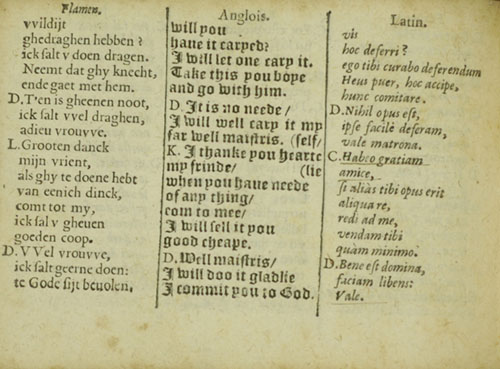 Flamen.
vvildijt
ghedraghen hebben?
ick salt v doen dragen.
Neemt dat ghy knecht,
ende gaet met hem.
D. T'en is gheenen noot,
ick salt vvel draghen,
adieu vrouvve.
L. Grooten danck
mijn vrient,
als ghy te doene hebt
van eenich dinck,
comt tot my,
ick sal v gheuen
goeden coop.
D. VVel vrouvve,
ick salt geerne doen:
te Gode sijt beuolen.
Anglois.
will you
haue it caryed?
I will let one cary it.
Take this you boye
and go with him.
D. It is no neede/
I will well cary it my
far well maistris. (self/
K. I thanke you hearte
my frinde/ (lie
when you haue neede
of any thing/
com to mee/
I will sell it you
good cheape.
D. Well maistris/
I will doo it gladlie
I commit you to God.
Latin.
vis
hoc deferri?
ego tibi curabo deferendum
Heus puer, hoc accipe,
hunc comitare.
D. Nihil opus est,
ipse facilè deferam,
vale matrona.
C. Habeo gratiam
amice,
si aliàs tibi opus erit
aliqua re,
redi ad me,
vendam tibi
quàm minimo.
D. Bene est domina,
faciam libens:
Vale.